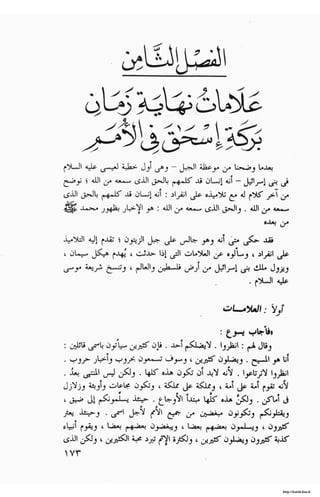 الفصل الثامن
علامات نهاية زمان
بركة إسحق في الأمم
بعدما وضحنا من موعظة الجبل – وهى أول خطبة لعيسى عليه السلام
فى بنى إسرائيل – أنه إنسان قد كلمهم بالحق الذى سمعه من الله ؛ نوضح
من آخر كلام له مع تلاميذه على انفراد : أنه إنسان قد كلمهم بالحق الذى
سمعه من الله . والحق الذى سمعه من الله : هو الإخبار بظهور محمد ﷺ
من بعده
فقد حكى متى أنه وهو جالس على جبل الزيتون ؛ تقدم إليه التلاميذ
على انفراد ، وسألوه عن العلامات التى إذا حدثت ، يُهدم هيكل سليمان ،
ويزول ملك بنى إسرائيل من أرض فلسطين والعالم ، وتنسخ شريعة موسى
عليه السلام .
أولاً : العلامــات
فأجاب يسوع :
وقال لهم : انظروا . لايضلكم أحد . فإن كثيرين سيأتون باسمى قائلين :
أنا هو المسيح . ويضلون كثيرين ، وسوف تسمعون بحروب وأخبار حروب .
انظروا لاترتاعوا . لأنه لابد أن تكون هذه كلها . ولكن ليس المنتهى بعد .
لأنه تقوم أمة على أمة ، ومملكة على مملكة ، وتكون مجاعات وأوبئة وزلازل
فى أماكن . ولكن هذه كلها مبتدأ الأوجاع . حينئذ يسلمونكم إلى ضيق ،
ويقتلونكم وتكونون مبغضين من جميع الأمم لأجل اسمى . وحينئذ يعثر
كثيرون ، ويسلمون بعضهم بعضا ، ويبغضون بعضهم بعضا ، ويقوم أنبياء
كذبة كثيرون ويضلون كثيرين ، ولكثرة الإثم تبرد محبة الكثيرين ، ولكن الذى
١٧٣
http://kotob.has.it